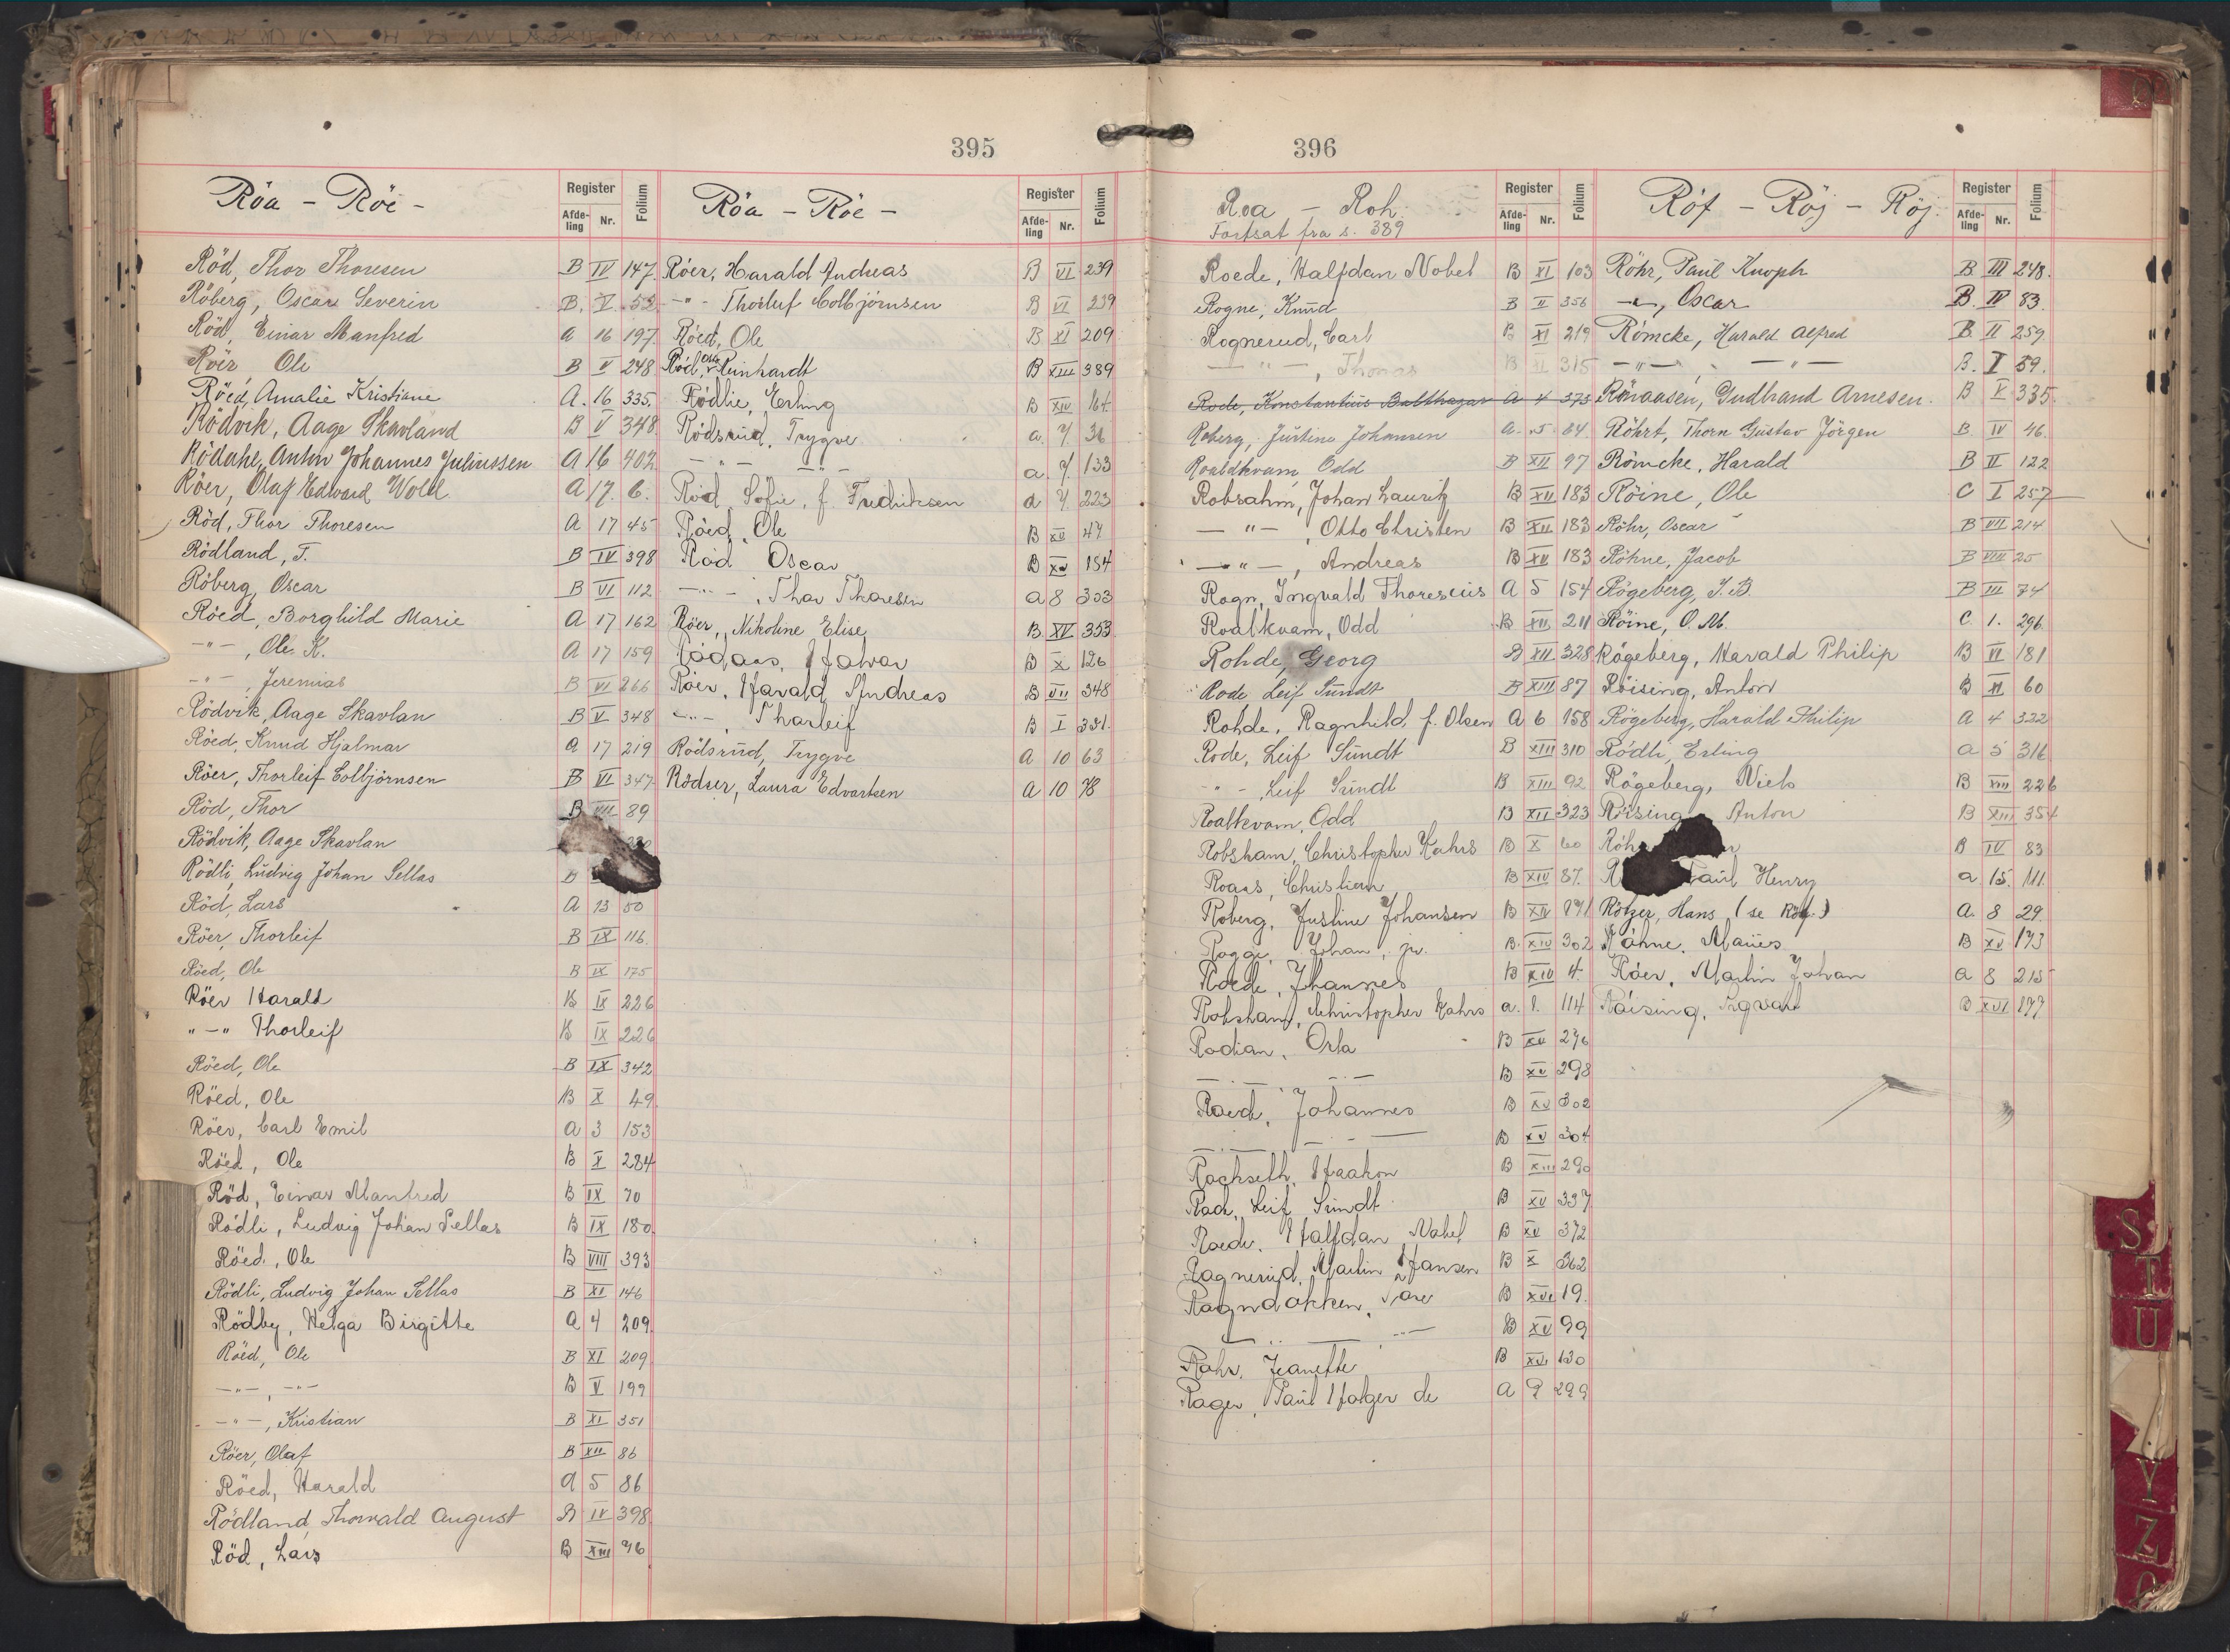 395
Röa - Röe -
Register
Afdeling Nr. Folium
Röd, Thor Thoresen B IV 147
Röberg, Oscar Severin B. V 53
Röd, Einar Manfred A 16 197
Röer Ole B V 248
Röed, Amalie Kristiane A. 16 335.
Rödvik, Aage Skavland B V 348
Anton Johannes Juliussen A 16 402
Röer, Olaf Edward Wold A 17. 6.
Röd, Thor Thoresen A 17 45
Rödland, T. B IV 398
Röberg, Oscar B VI 112
Röed, Borghild Marie A 17 162
-"-, Ole K. A 17 159
-"-, Jeremias B VI 266
Rödvik, Aage Skavlan B V 348
Röed, Knud Hjalmar A 17 219
Röer, Thorleif Colbjörnsen B VI 347
Röd, Thor B VII 89
Rödvik, Aage Skavlan
Rödli, Ludvig Johan Sellas B
Röd, Lars A 13 50
Röer, Thorleif B IX 116.
Röed, Ole B IX 175
Röer Harald B IX 226
"-" Thorleif B IX 226
Röed, Ole B IX 342
Röed, Ole B X 49
Röer, Carl Emil A 3 153
Röed, Ole B X 284
Röd, Einar Manfred B IX 70
Rödli, Ludvig Johan Sellas B IX 180
Röed, Ole B VIII 393
Rödli, Ludvig Johan Sellas B XI 146
Rödby, Helga Birgitte A 4 209
Röed, Ole B XI 209
-"-, -"- B V 199
-"-, Kristian B XI 351
Röer, Olaf B XII 86
Röed, Harald A 5 86
Rödland, Thorvald August B IV 398
Röd, Lars B XIII 96
Röa - Röe -
Register
Afdeling Nr. Folium
Röer, Harald Andreas B VI 239
-"- Thorluf Colbjörnsen B VI 239
Röed, Ole B XI 209
Röd, Reinhardt B XIII 389
Rödlie, Erling B XIV 164
Rödsrud, Trygve a. 7. 36
-"- -"- a. 7. 133
Röd, Sofie, f. Fredriksen a 7. 223
Röed, Ole B XV 47
Röd Oscar B XV 154
-"-, Thor Thoresen a 8 303
Röer, Nikoline Elise B. XV 353
Rödaas, Halvor B X 126
Röer, Harald Andreas B VII 348
-"-, Thorleif B I 351.
Rödsrud, Trygve A 10 63
Rödser, Laura Edvartsen A 10 78
396
Roa - Roh.
Fortsat fra s. 389
Register
Afdeling Nr. Folium
Roede, Halfdan Nobel B XI 103
Rogne, Knud B II 356
Rognerud, Carl B XI 219
-"-, Thomas B II 315
Rode, Konstantius Balthazar A 4 373
Roberg, Justine Johansen A. 5 84
Roaldkvam, Odd B XII 97
Robsahm, Johan Lauritz B XII 183
-"-, Otto Christen B XII 183
-"-, Andreas B XII 183
Rogn, Ingvald Thoresius A 5 154
Roalkvam, Odd B XII 211
Rohde, Georg B XII 328
Rode Leif Sundt B XIII 87
Rohde, Ragnhild f. Olsen A 6 158
Rode, Leif Sundt B XIII 310
-"-, Leif Sundt B XIII 92
Roalkvam, Odd B XII 323
Robsham, Christopher Kahrs B X 60
Roaas, Christian B XIV 87.
Roberg, Justine Johansen B XIV 171
Rogge, Johan, jr. B. XIV 302
Roede, Johannes B XIV 4
Robsham, Christopher Kahrs a. 8. 114
Rodian, Orla B XV 276
-"- -"- B XV 298
Roed, Johannes B XV 302
-"- B XV 304
Rockseth, Haakon B XIII 290
Rode, Leif Sundt B XV 337
Roede, Halfdan Nobel B XV 372
Rognerud, Martin Hansen B X 362
Rogndokken, Tore B XVI 19.
-"- -"- B XV 99
Rohr, Jeanette B XVI 130
Roger, Paul Holger de A 9 299
Röf - Röj - Röj.
Register
Afdeling Nr. Folium
Röhr, Paul Knoph B. III 248.
-"-, Oscar B. IV 83.
Römcke, Harald Alfred B. II 259
-"- -"- B. I 59.
Rönaasen, Gudbrand Arnesen. B V 335
Röhrt, Thorn Gustav Jörgen B. IV 46.
Römcke, Harald B II 122
Röine, Ole C I 257
Röhr, Oscar B VII 214
Röhne, Jacob B VIII 25
Rögeberg, J. B. B III 74
Röine, O. M. C. 1. 296.
Rögeberg, Harald Philip B VI 181
Röising, Anton B XI 60
Rögeberg, Harald Philip A 4 322
Rödli, Erling a 5 316
Rögeberg, Niels B XIII 226
Röising, Anton B XIII 354
Röh B IV 83
Paul Henry a. 15. 111.
Rötzer, Hans (se Röd.) A. 8 29.
Röhne, Maues B XV 173
Röer, Martin Johan a 8 215
Röising, Ingvald B XVI 177
S
T
U
Y
Z